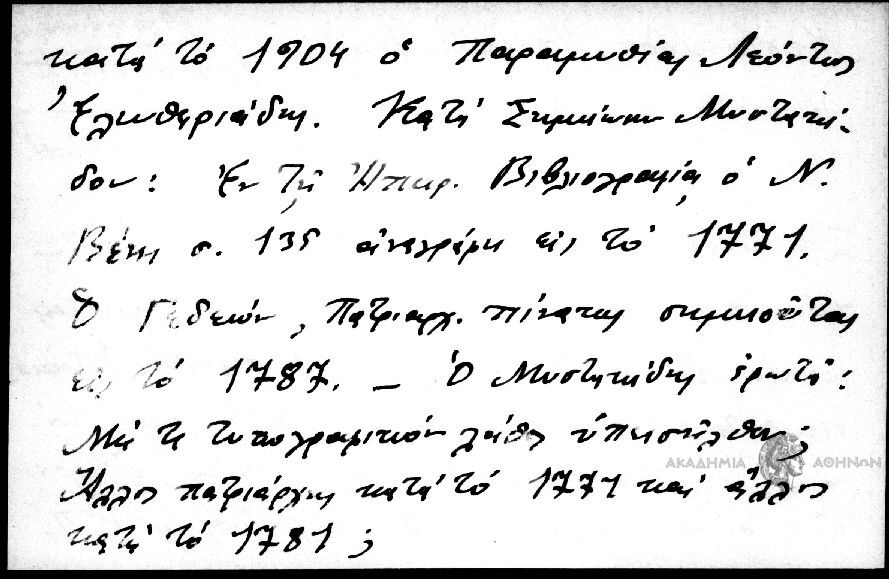 κατά τό 1904 ὁ Παραμυθίας Λεόντιος
Ἐλευθεριάδης. Κατά Σημείωσιν Μυστακί-
δου: Ἐν τῇ Ἠπειρ. Βιβλιογραφίᾳ ὁ Ν.
Βέης σ. 135 ἀνεγράφη εἰς τό 1771.
Ὁ Γεδεών, Πατριαρχ. πίνακες σημειοῦται
εἰς τό 1787. — Ὁ Μυστακίδης ἐρωτᾷ:
Μή τι τυπογραφικόν λάθος ὑπεισῆλθεν;
Ἄλλος πατριάρχης κατά τό 1771 καί ἄλλος
κατά τό 1781;
ΑΚΑΔΗΜΙΑ ΑΘΗΝΩΝ